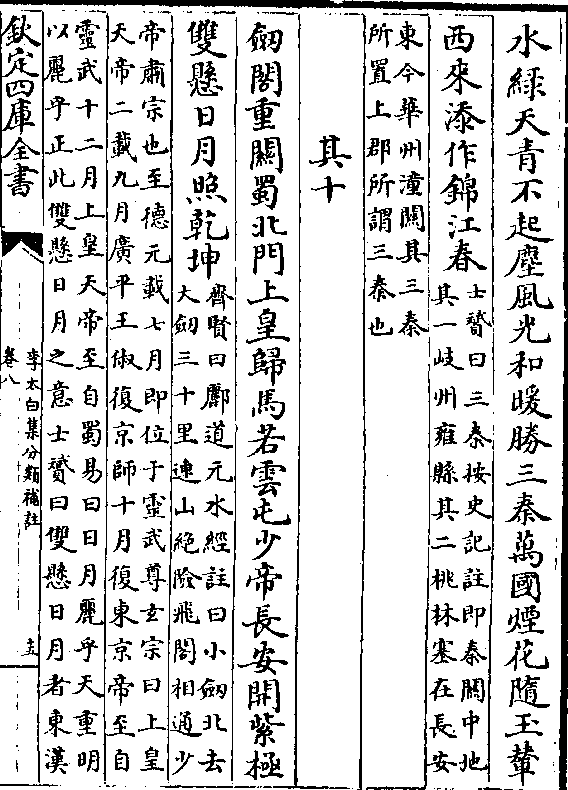 水綠天青不起塵風光和暖勝三秦萬國煙花隨玉輦
西來添作錦江春
士贇曰三秦按史記註即秦關中地
其一岐州雍縣其二桃林塞在長安
東今華州潼關其三秦
所置上郡所謂三秦也
其十
劒閣重關蜀北門上皇歸馬若雲屯少帝長安開紫極
雙懸日月照乾坤
齊賢曰酈道元水經註曰小劒北去
大劒三十里連山絶險飛閣相通少
帝肅宗也至德元載七月即位于靈武尊玄宗曰上皇
天帝二載九月廣平王俶復京師十月復東京帝至自
靈武十二月上皇天帝至自蜀易曰日月麗乎天重明
以麗乎正此雙懸日月之意士贇曰雙懸日月者東漢
欽定四庫全書
李太白集分類補註
卷八
十五